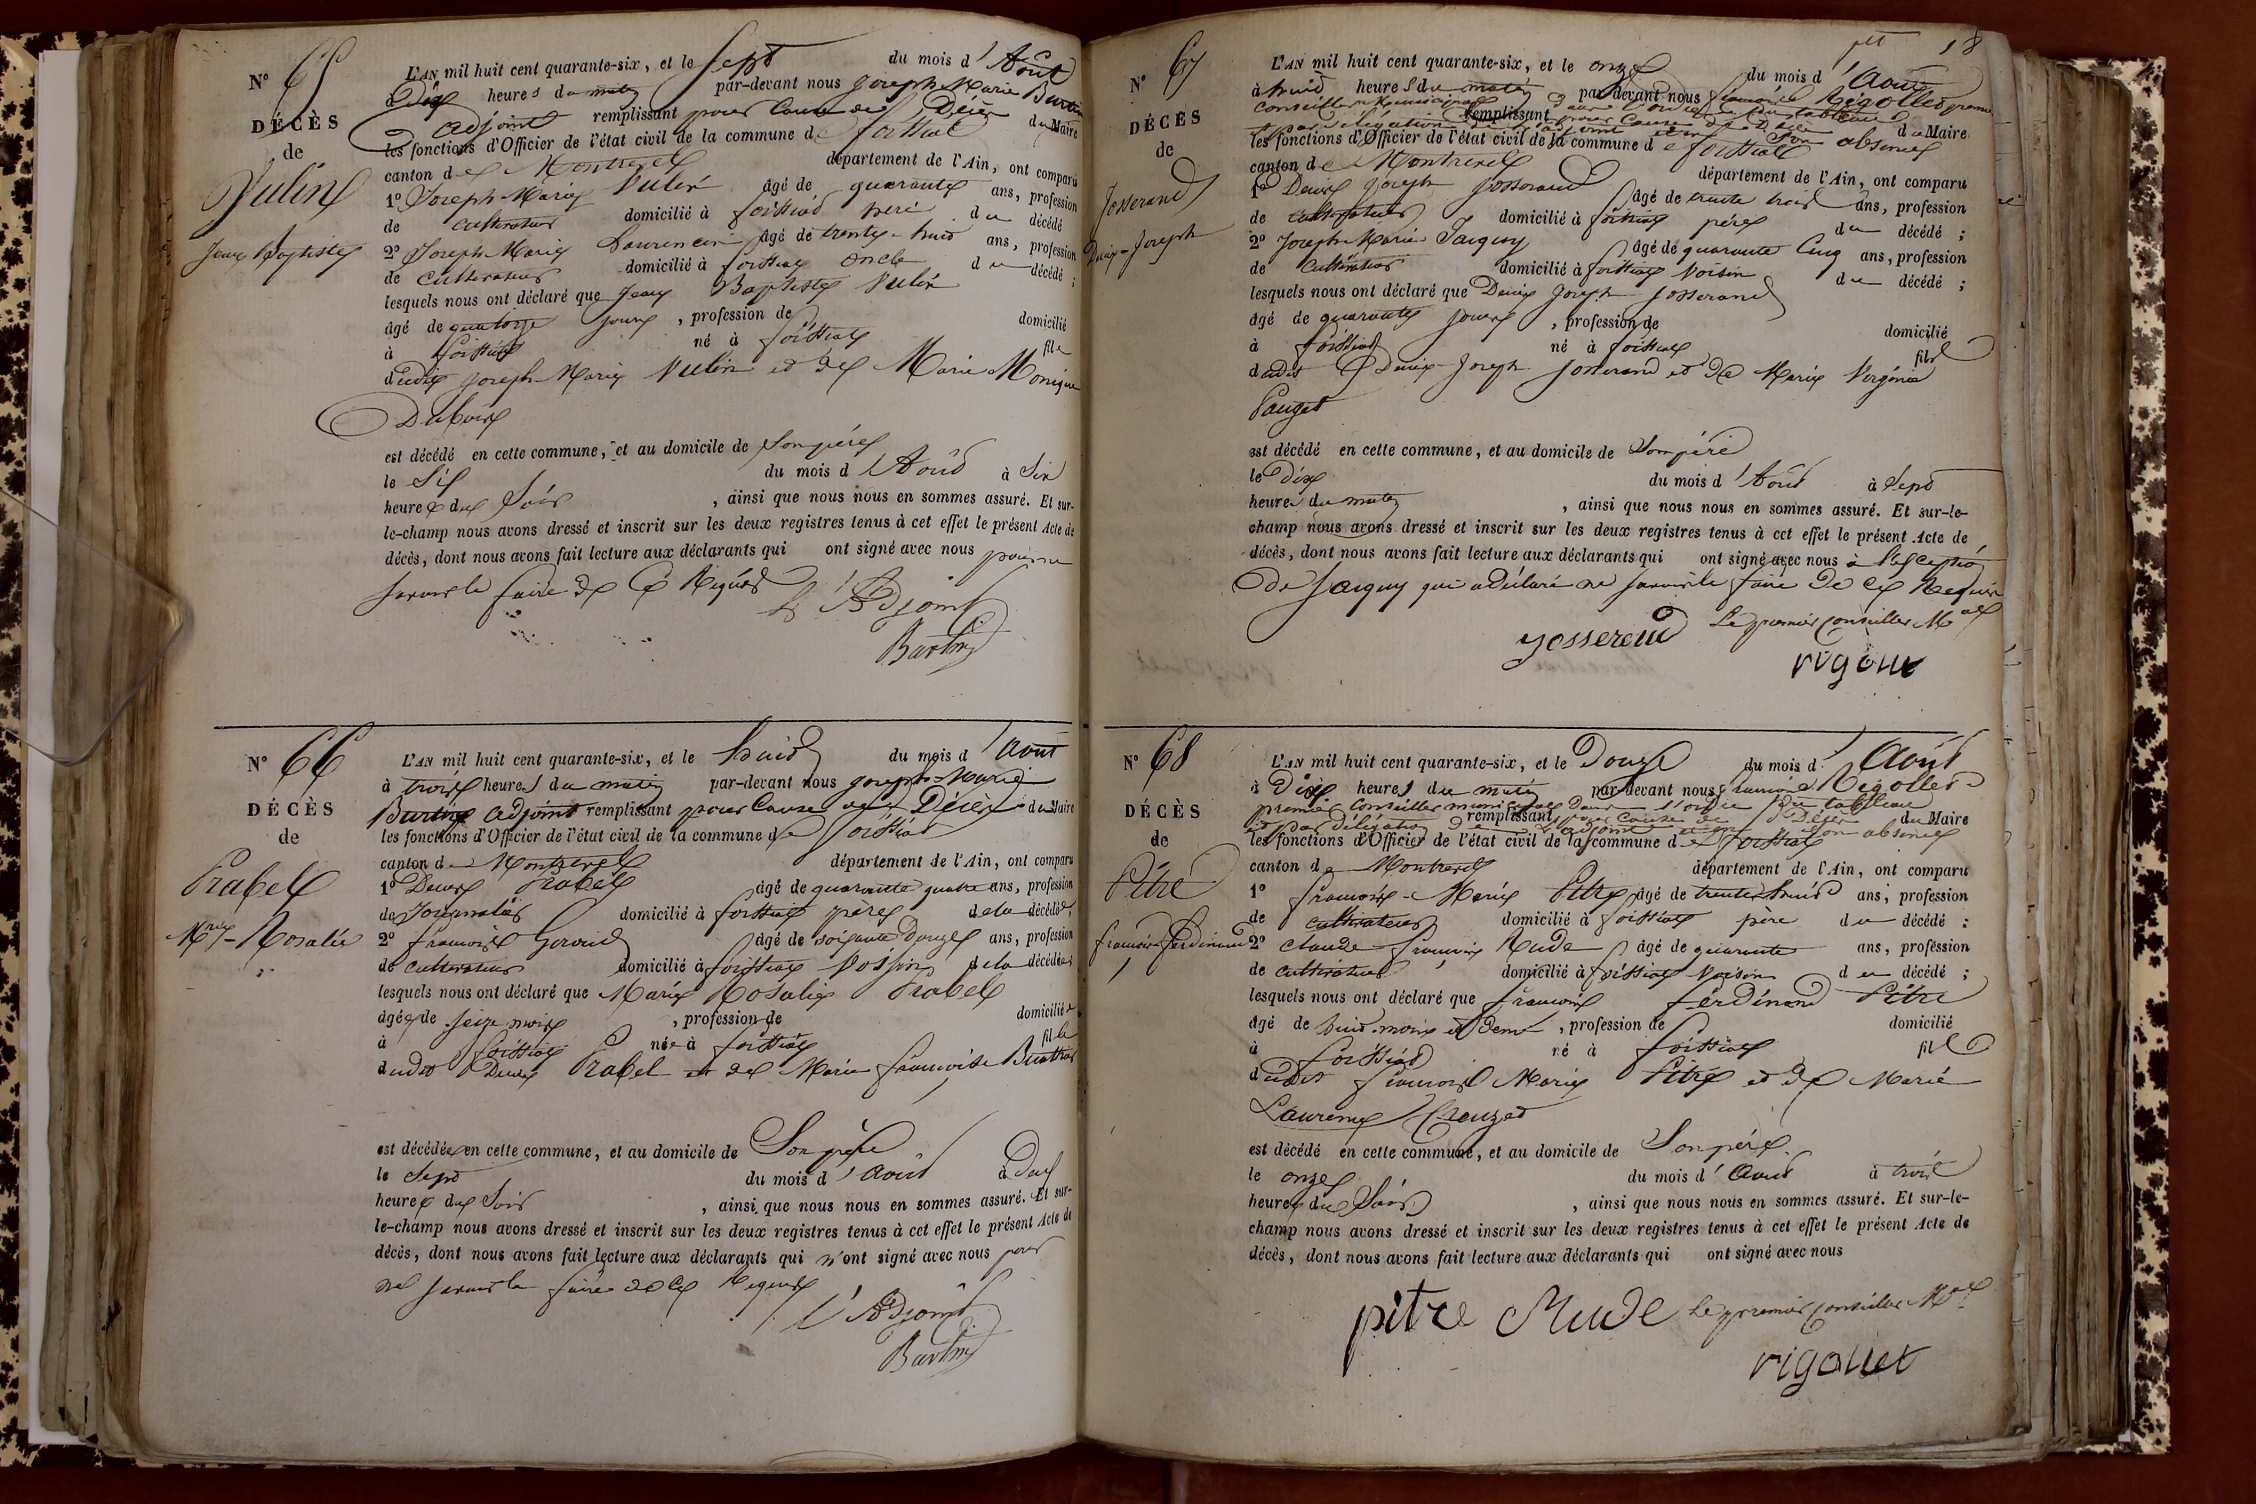 N° 65
DÉCÈS
de
Vulin
Jean Baptiste
L'AN mil huit cent quarante-six, et le Sept du mois d'Août
à Dix heures du matin par-devant nous Joseph Marie Burtin
adjoint remplissant pour cause de Décès du Maire
les fonctions d'Officier de l'état civil de la commune de foissiat
canton de Montrevel département de l'Ain, ont comparu
1° Joseph Marie Vulin âgé de quarante ans, profession
de cultivateur domicilié à foissiat père du décédé
2° Joseph Marie Laurencin âgé de trente-huit ans, profession
de cultivateur domicilié à foissiat oncle du décédé ;
lesquels nous ont déclaré que Jean Baptiste Vulin
âgé de quatorze jours , profession de domicilié
à foissiat né à foissiat fils
dudit Joseph Marie Vulin et de Marie Monique
Dubois
est décédé en cette commune, et au domicile de Son père
le Six du mois d'Août à Six
heures du Soir , ainsi que nous nous en sommes assuré. Et sur-
le-champ nous avons dressé et inscrit sur les deux registres tenus à cet effet le présent Acte de
décès, dont nous avons fait lecture aux déclarants qui ont signé avec nous pour ne
Savoir le faire de ce Requis
L'Adjoint
Burtin
N° 66
DÉCÈS
de
Prabel
Mrie-Rosalie
L'AN mil huit cent quarante-six, et le huit du mois d'Août
à trois heures du matin par-devant nous Joseph-Marie
Burtin adjoint remplissant pour Cause de Décès du Maire
les fonctions d'Officier de l'état civil de la commune de foissiat
canton de Montrevel département de l'Ain, ont comparu
1° Denis Prabel âgé de quarante quatre ans, profession
de Journalier domicilié à foissiat père de la décédée,
2° françois âgé de soixante Douze ans, profession
de cultivateur domicilié à foissiat Voisin de la décédée
lesquels nous ont déclaré que Marie Rosalie Prabel
âgée de seize mois , profession de domiciliée
à foissiat née à foissiat fille
dudit Denis Prabel et de Marie françoise
est décédée en cette commune, et au domicile de Son père
le Sept du mois d'Août à Dix
heures du Soir , ainsi que nous nous en sommes assuré. Et sur-
le-champ nous avons dressé et inscrit sur les deux registres tenus à cet effet le présent Acte de
décès, dont nous avons fait lecture aux déclarants qui n'ont signé avec nous pour
ne Savoir le faire de ce Requis
L'Adjoint
Burtin
18
N° 67
DÉCÈS
de
Josserand
Denis-Joseph
L'AN mil huit cent quarante-six, et le onze du mois d'Août
à huit heures du matin par-devant nous françois Rigollet premier
conseiller municipal dans l'ordre du tableau
remplissant pour cause de Décès du Maire
et par délégation de l'adjoint en son absence
les fonctions d'Officier de l'état civil de la commune de foissiat
canton de Montrevel département de l'Ain, ont comparu
1° Denis Joseph Josserand âgé de trente trois ans, profession
de cultivateur domicilié à foissiat père du décédé ;
2° Joseph Marie Janguy âgé de quarante Cinq ans, profession
de Cultivateur domicilié à foissiat Voisin du décédé ;
lesquels nous ont déclaré que Denis Joseph Josserand
âgé de quarante jours , profession de domicilié
à foissiat né à foissiat fils
dudit Denis-Joseph Josserand et de Marie Virginie
Pauget
est décédé en cette commune, et au domicile de Son père
le Dix du mois d'Août à Sept
heures du matin , ainsi que nous nous en sommes assuré. Et sur-le-
champ nous avons dressé et inscrit sur les deux registres tenus à cet effet le présent Acte de
décès, dont nous avons fait lecture aux déclarants qui ont signé avec nous à l'exception
de Janguy qui a déclaré ne savoir le faire de ce Requis
Le premier Conseiller Mal
Josserand
rigollet
N° 68
DÉCÈS
de
Pitre
françois Ferdinand
L'AN mil huit cent quarante-six, et le Douze du mois d'Août
à Dix heures du matin par-devant nous françois Rigollet
premier conseiller municipal dans l'ordre du tableau
remplissant pour cause de Décès du Maire
et par délégation de l'adjoint en son absence
les fonctions d'Officier de l'état civil de la commune de foissiat
canton de Montrevel département de l'Ain, ont comparu
1° françois-Marie Pitre âgé de trente huit ans, profession
de cultivateur domicilié à foissiat père du décédé :
2° claude françois Rude âgé de quarante ans, profession
de cultivateur domicilié à foissiat Voisin du décédé ;
lesquels nous ont déclaré que françois ferdinand Pitre
âgé de huit mois et demi , profession de domicilié
à foissiat né à foissiat fils
dudit françois Marie Pitre et de Marie
Laurence Creuzet
est décédé en cette commune, et au domicile de Son père
le onze du mois d'Août à trois
heures du Soir , ainsi que nous nous en sommes assuré. Et sur-le-
champ nous avons dressé et inscrit sur les deux registres tenus à cet effet le présent Acte de
décès, dont nous avons fait lecture aux déclarants qui ont signé avec nous
pitre Rude Le premier Conseiller Mal
rigollet